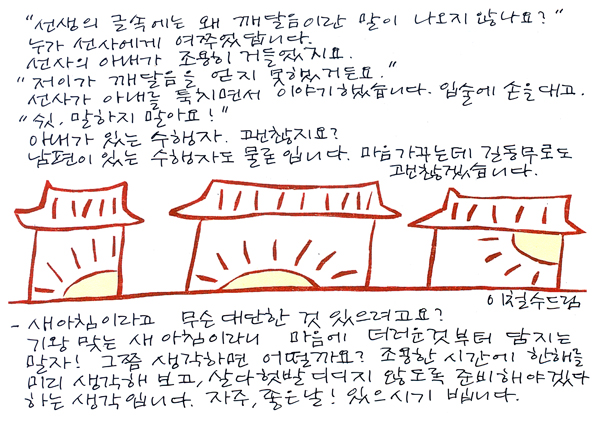 "선생의 글속에는 왜 깨달음이란 말이 나오지 않나요?"
누가 선사에게 여쭈었답니다.
선사의 아내가 조용히 거들었지요.
"저이가 깨달음을 얻지 못했거든요."
선사가 아내를 툭치면서 이야기했습니다. 입술에 손을대고.
"쉿, 말하지 말아요!"
아내가 있는 수행자. 괜찮지요?
남편이 있는 수행자도 물론입니다. 마음가꾸는데 길동무로도
괜찮겠습니다.
이철수드림
- 새아침이라고 무슨 대단한 것 있으려고요?
기왕 맞는 새아침이라니 마음에 더러운것부터 담지는
말자! 그쯤 생각하면 어떨까요? 조용한 시간에 한해를
미리 생각해 보고, 살다헛발 디디지 않도록 준비해야겠다
하는 생각입니다. 자주, 좋은날! 있으시기 빕니다.